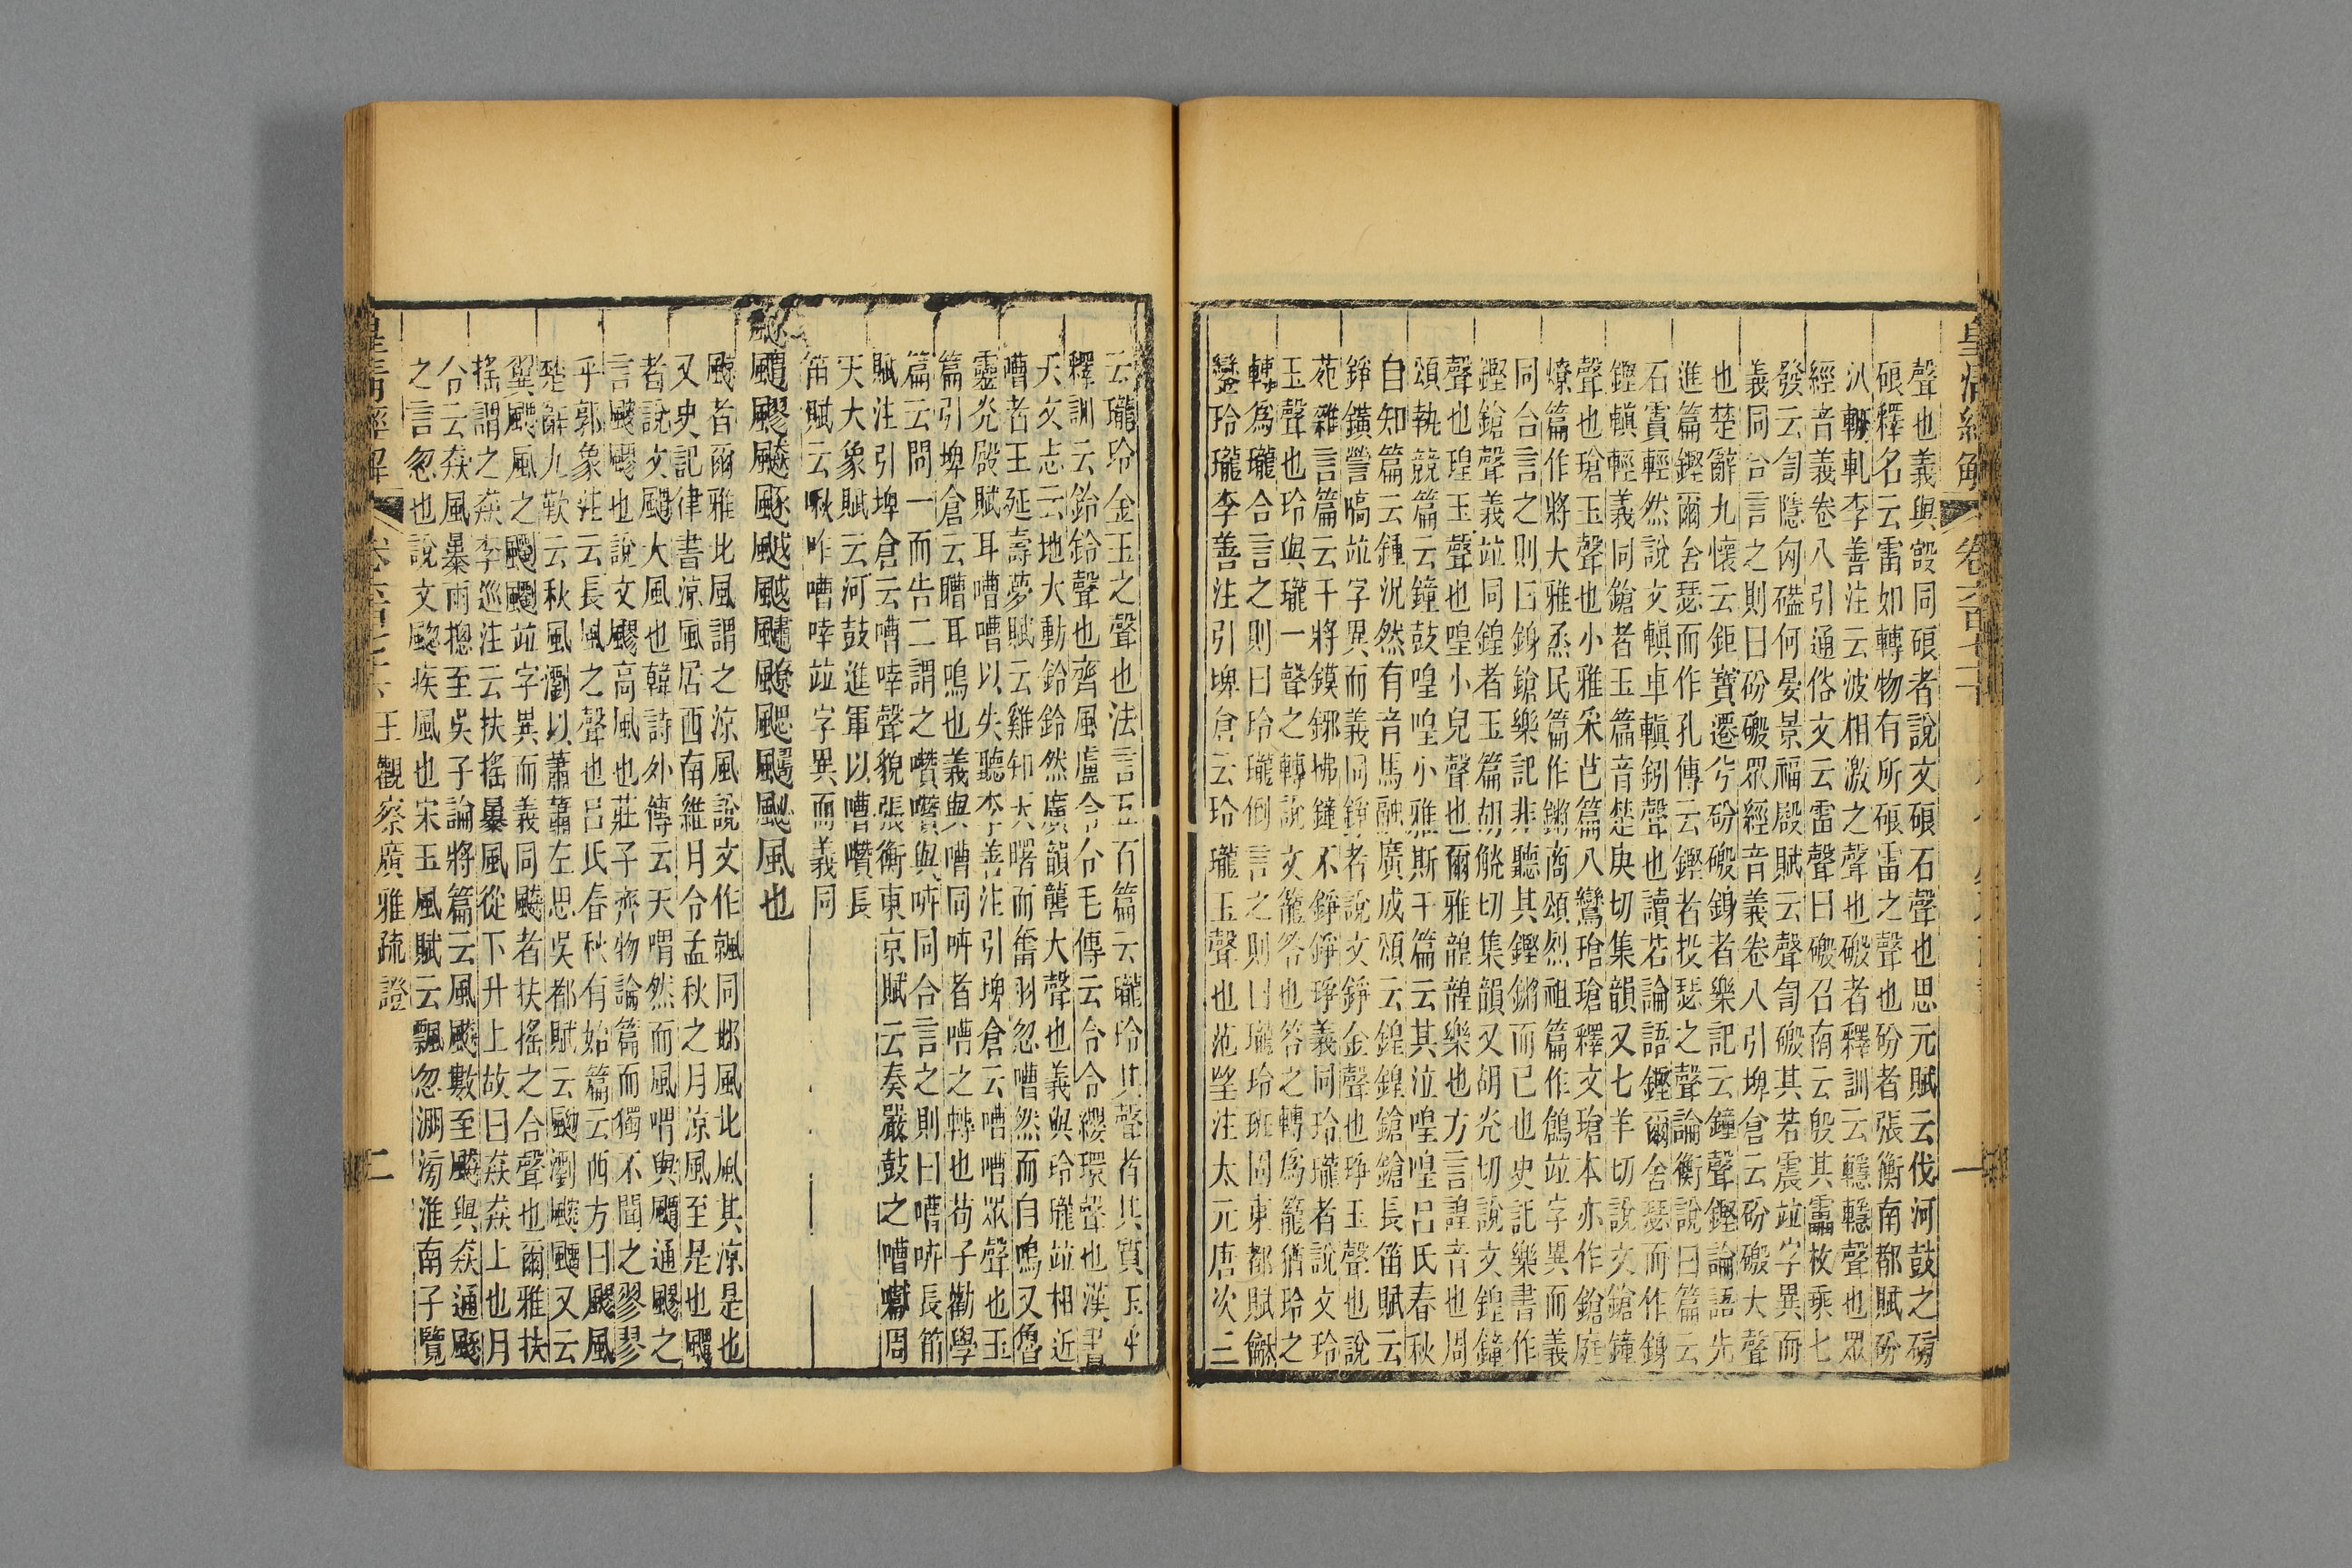 皇清經解
卷六百七十
一
聲也義與㱾同硠者說文硠石聲也思元賦云伐河鼓之磅
硠釋名云雷如轉物有所硠雷之聲也砏者張衡南都賦砏
汃輣軋李善注云波相激之聲也磤者釋訓云轞轞聲也眾
經音義卷八引通俗文云雷聲曰磤召南云殷其靁枚乘七
發云訇隱匈磕何晏景福殿賦云聲訇磤其若震竝字異而
義同合言之則曰砏磤眾經音義卷八引埤倉云砏磤大聲
也楚辭九懷云鉅寶遷兮砏磤鍧者樂記云鐘聲鏗論語先
進篇鏗爾舍瑟而作孔傳云鏗者投瑟之聲論衡說日篇云
石實輕然說文轋車轋釰聲也讀若論語鏗爾舍瑟而作鍧
鏗轋輕義同鎗者玉篇音楚庚切集韻又七羊切說文鎗鐘
聲也瑲玉聲也小雅采芑篇八鸞瑲瑲釋文瑲本亦作鎗庭
燎篇作將大雅烝民篇作鏘商頌烈祖篇作鶬竝字異而義
同合言之則曰鍧鎗樂記非聽其鏗鏘而已也史記樂書作
鏗鎗聲義竝同鍠者玉篇胡觥切集韻又胡光切說文鍠鐘
聲也瑝玉聲也喤小兒聲也爾雅韹韹樂也方言諻音也周
頌執競篇云鐘鼓喤喤小雅斯干篇云其泣喤喤呂氏春秋
自知篇云鍾況然有音馬融廣成頌云鍠鍠鎗鎗長笛賦云
錚鐄謍嗃竝字異而義同錚者說文錚金聲也琤玉聲也說
苑雜言篇云干將鏌鋣拂鐘不錚錚琤義同玲瓏者說文玲
玉聲也玲與瓏一聲之轉說文籠笭也笭之轉爲籠猶玲之
轉爲瓏合言之則曰玲瓏倒言之則曰瓏玲班固東都賦龢
鑾玲瓏李善注引埤倉云玲瓏玉聲也范望注太元唐次三
云瓏玲金玉之聲也法言五百篇云瓏玲其聲者其質玉乎
釋訓云鈴鈴聲也齊風盧令令毛傳云令令纓環聲也漢書
天文志云地大動鈴鈴然廣韻䶬大聲也義與玲瓏竝相近
嘈者王延壽夢賦云雞知天曙而奮羽忽嘈然而自鳴又魯
靈光殿賦耳嘈嘈以失聽李善注引埤倉云嘈嘈眾聲也玉
篇引埤倉云聹耳鳴也義與嘈同哳者嘈之轉也荀子勸學
篇云問一而告二謂之囋囋與哳同合言之則曰嘈哳長笛
賦注引埤倉云嘈啈聲貌張衡東京賦云奏嚴鼓之嘈囐周
天大象賦云河鼓進軍以嘈囋長
笛賦云啾咋嘈啐竝字異而義同
颰䬍飂飇䬇䬂䬘飉颸飋颮風也
飆者爾雅北風謂之涼風說文作飆同北風北風其涼是也
又史記律書涼風居西南維月令孟秋之月涼風至是也䬍
者說文䬍大風也韓詩外傳云天喟然而風喟與䬍通飂之
言飂飂也說文飂高風也莊子齊物論篇而獨不聞之翏翏
乎郭象注云長風之聲也呂氏春秋有始篇云西方曰飂風
楚辭九歎云秋風瀏以蕭蕭左思吳都賦云颲瀏颼飀又云
翼飋風之颲颲竝字異而義同飇者扶搖之合聲也爾雅扶
搖謂之猋李巡注云扶搖暴風從下升上故曰猋猋上也月
令云猋風暴雨摠至吳子論將篇云風飇數至飇與猋通颷
之言忽也說文颷疾風也宋玉風賦云飄忽淜滂淮南子覽
皇清經解
卷六百七十
王觀察廣雅疏證
二